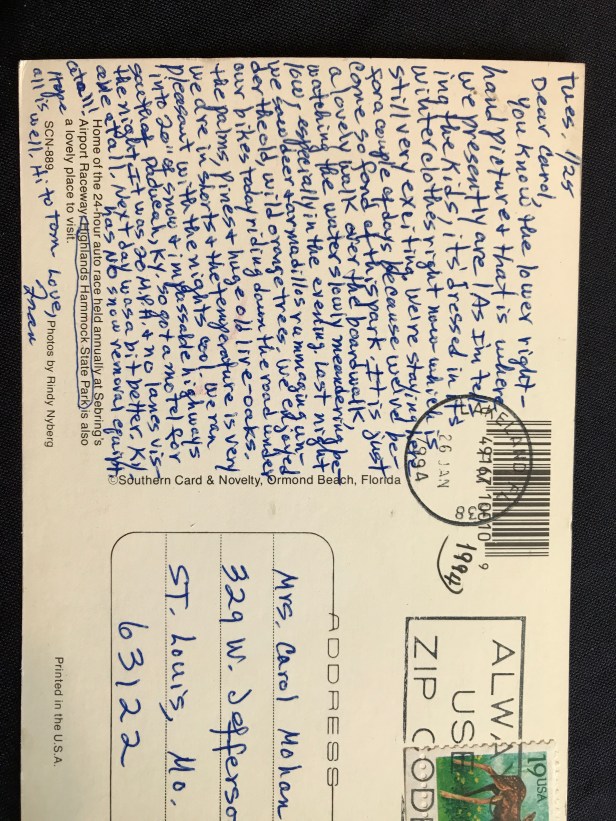 Tues. 1/25
Dear Carol,
You know the lower right-
hand picture & that is where
we presently are (As I'm tell-
ing the kids, it's dressed in its
winter clothes right now which is
still very exciting. We're staying here
for a couple of days because we've be-
come so fond of this park. It is just
a lovely walk over the boardwalk,
watching the water slowly meandering be-
low, especially in the evening. Last night
we saw deer & armadillos rummaging un-
der the old, wild orange trees. We enjoyed
our bikes today riding down the road under
the palms, pines & huge old live-oaks.
We're in shorts & the temperature is very
pleasant with the nights cool. We ran
into 20" of snow & impassable highways
Paducah, Ky. so got a motel for
the night. It was 20 M.P.H. & no lanes vis-
able at all. Next day was a bit better. Ky.
has no snow removal equipt.
at all.
Hope
all is well. Hi to Tom Love,
Home of the 24-hour auto race held annually at Sebring's
Airport Raceway. Highlands Hammock State Park is also
a lovely place to visit.
SCN-889 Photos by Rindy Nyberg
©Southern Card & Novelty, Ormond Beach, Florida
26 JAN
1994
38
49767 10610 9
(1994)
ALWA
USE
ZIP COD
19USA
ADDRESS
Mrs. Carol Mohan
329 W. Jefferso
ST. Louis, Mo.
63122
Printed in the U.S.A.